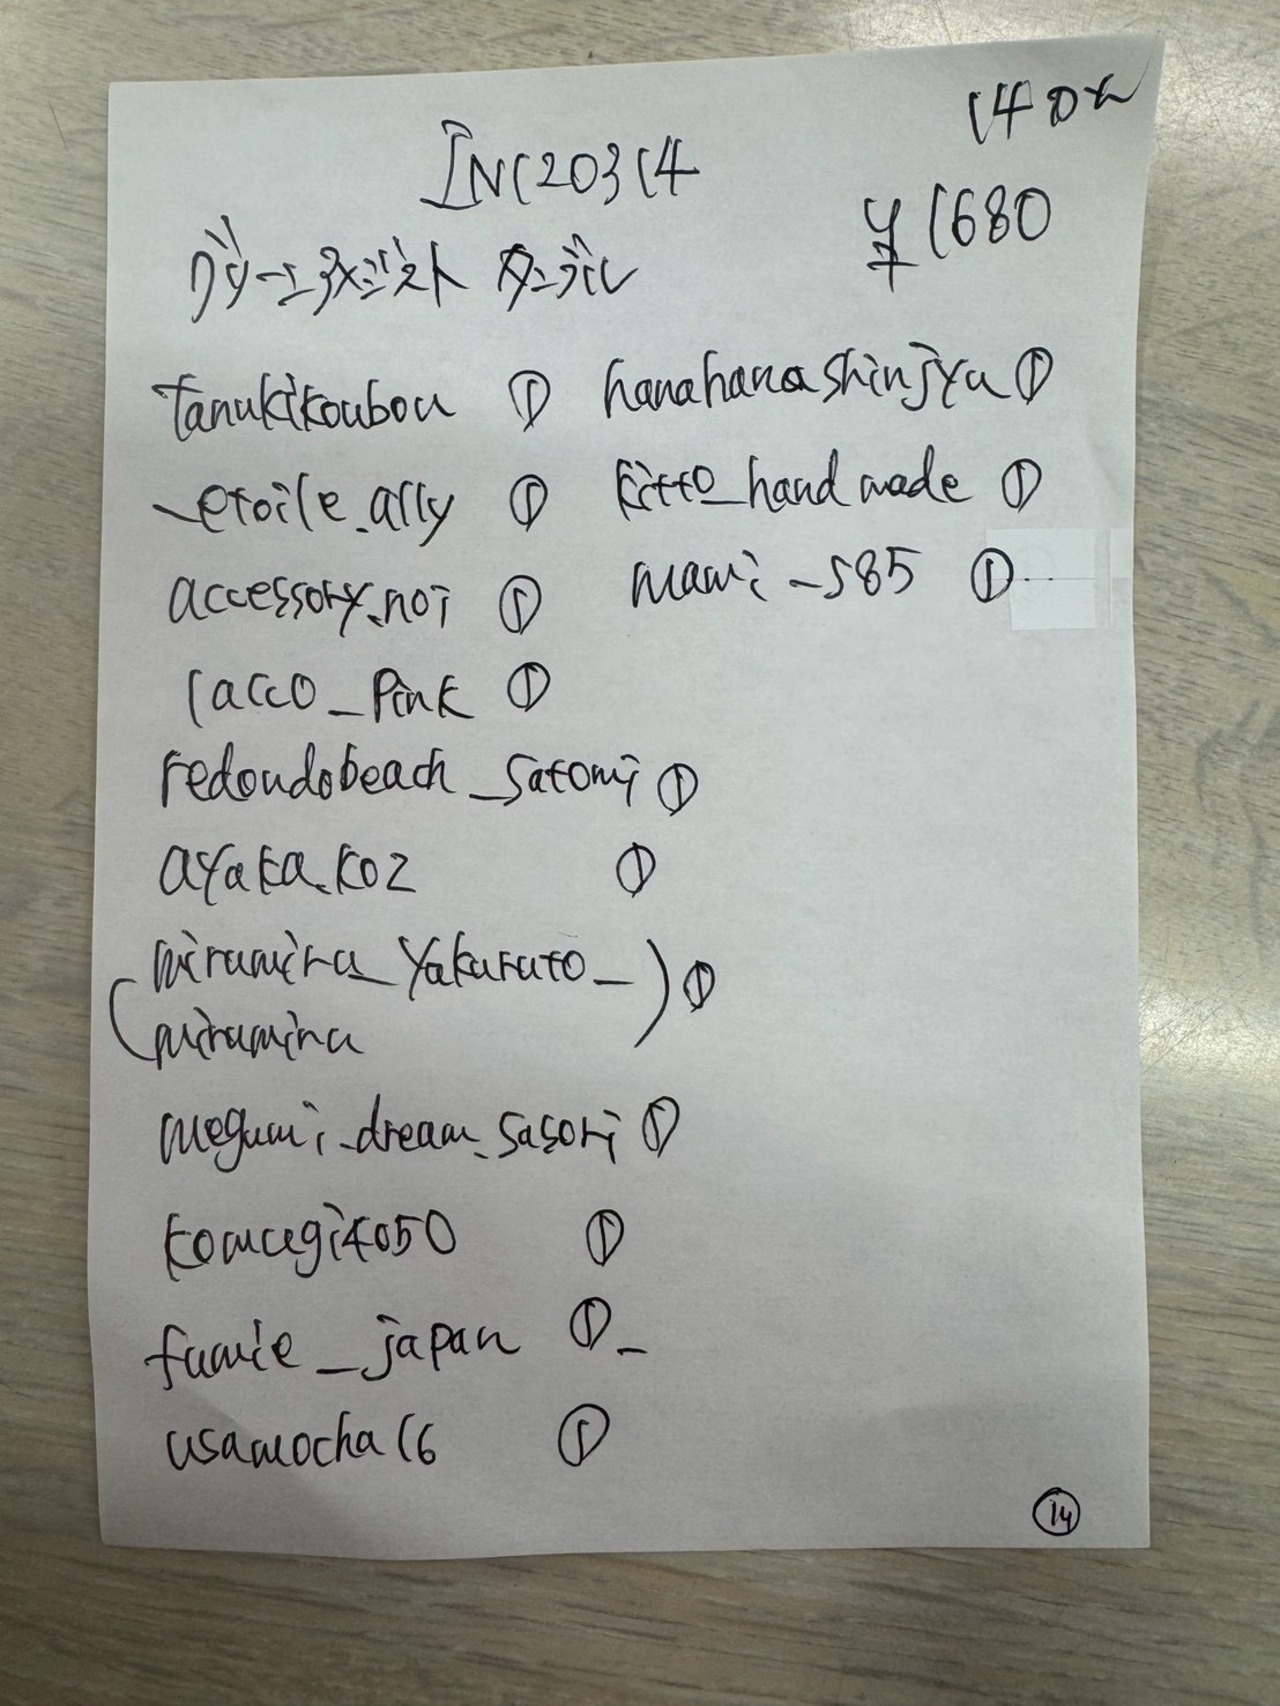 14コ
IN120314
¥1680
グリーンアメジスト タンブル
tanukikoubou ①
_etoile.ally ①
accessory.noi ①
lacco_pink ①
redondobeach_satomi ①
ayaka.koz ①
(miramira_yakurato_
miramira) ①
megumi_dream_sasori ①
komugi4050 ①
fumie_japan ① _
usamocha16 ①
hanahanashinjyu ①
kitto_handmade ①
mami_s85 ①
⑭